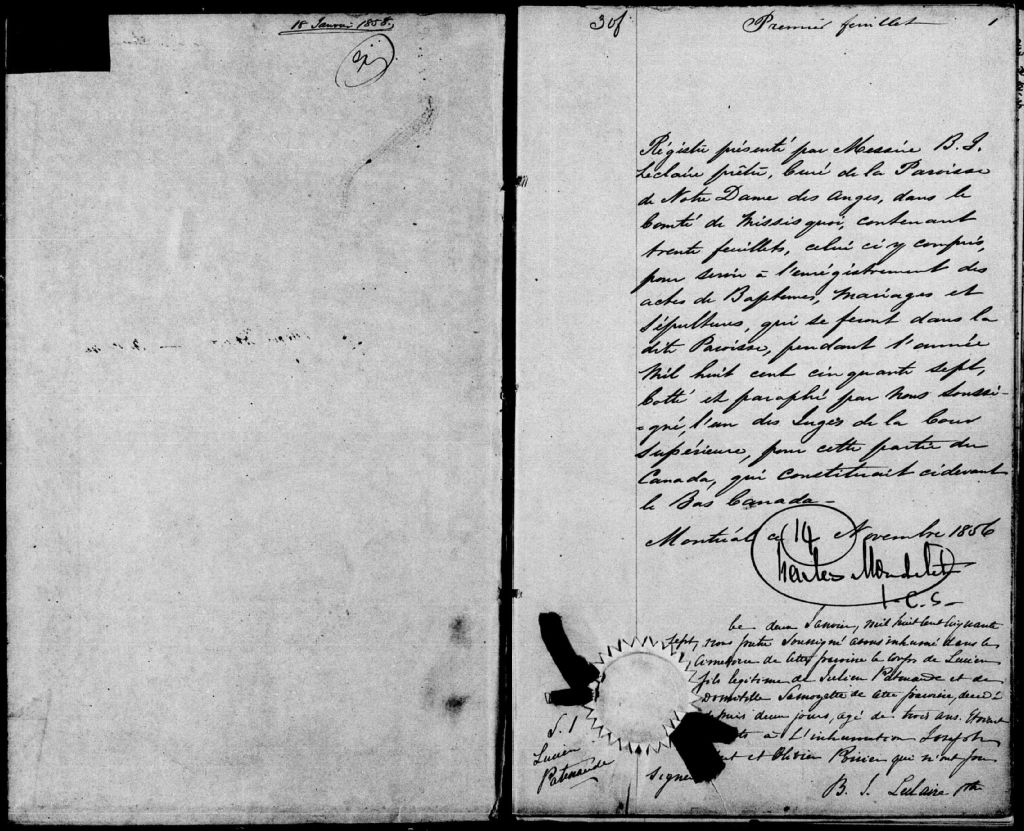 18 Janvier 1858.
30f
Premier feuillet
1
Régistre présenté par Messire B. J.
Leclaire prêtre, Curé de la Paroisse
de Notre Dame des Anges, dans le
Comté de Missisquoi, contenant
trente feuillets, celui ci y compris,
pour servir à l'enrégistrement des
actes de Baptemes, mariages et
Sépultures, qui se feront dans la
dite Paroisse, pendant l'année
Mil huit cent cinquante sept,
Cotté et paraphé par nous soussi-
-gné, l'un des Juges de la Cour
Supérieure, pour cette partie du
Canada, qui constituait cidevant
le Bas Canada -
Montréal ce 14 Novembre 1856
Charles Mondelet
J. C. S.
Le deux Janvier, mil huit cent cinquante
sept, nous prêtre soussigné avons inhumé dans le
cimetière de cette paroisse le corps de Lucien
fils legitime de Julien Patenaude et de
Domitille Samoyette de cette paroisse, decédé
depuis deux jours, agé de trois ans. Etoient
à L'inhumation Joseph
et Olivier Poirier qui n'ont pu
signer
B. J. Leclaire Ptre
S. 1
Lucien
Patenaude